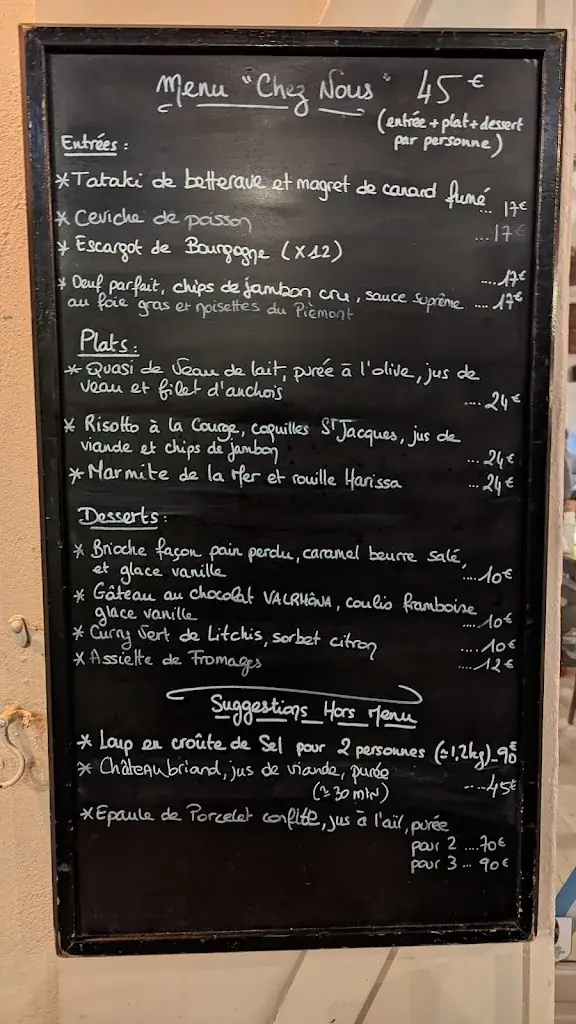 Menu "Chez Nous" 45€
(entrée + plat + dessert
par personne)
Entrées :
* Tataki de betterave et magret de canard fumé ... 17€
* Ceviche de poisson ... 17€
* Escargot de Bourgogne (x12) .... 17€
* Oeuf parfait, chips de jambon cru, sauce suprême .... 17€
au foie gras et noisettes du Pièmont
Plats :
* Quasi de Veau de lait, purée à l'olive, jus de
veau et filet d'anchois .... 24€
* Risotto à la Courge, coquilles St Jacques, jus de
viande et chips de jambon ... 24€
* Marmite de la Mer et rouille Harissa ... 24€
Desserts :
* Brioche façon pain perdu, caramel beurre salé,
et glace vanille .... 10€
* Gâteau au chocolat VALRHÔNA, coulis framboise
glace vanille .... 10€
* Curry Vert de Litchis, sorbet citron .... 10€
* Assiette de Fromages .... 12€
Suggestions Hors Menu
* Loup en croûte de Sel pour 2 personnes (≃1,2kg)_90€
* Châteaubriand, jus de viande, purée ---45€
(≃30 min)
* Epaule de Porcelet confitte, jus à l'ail, purée
pour 2 ....70€
pour 3 ... 90€